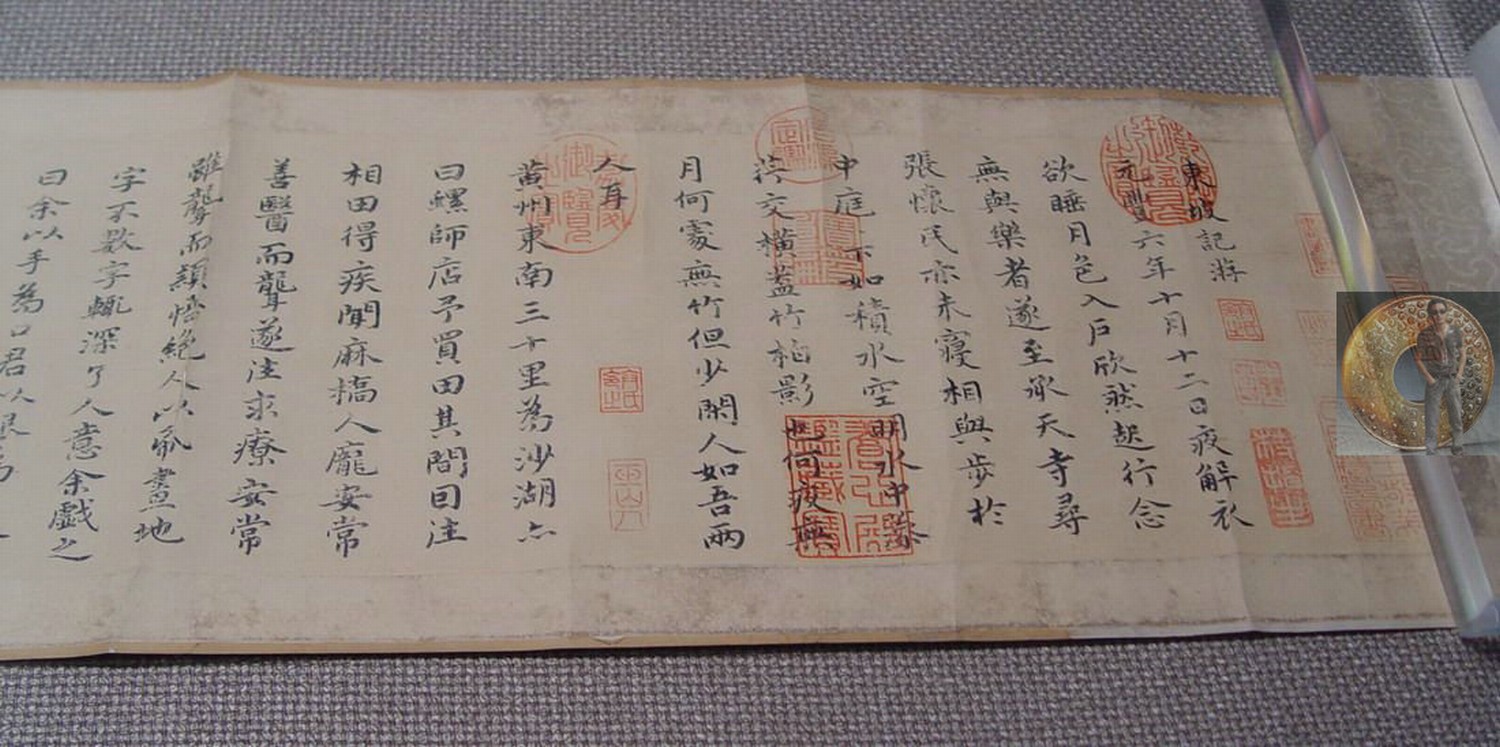 東坡記游
元豐六年十月十二日夜解衣
欲睡月色入戶欣然起行念
無與樂者遂至承天寺尋
張懷民亦未寢相與步於
中庭下如積水空明水中藻
荇交橫蓋竹柏影也何夜無
月何處無竹但少閑人如吾兩
人耳
黃州東南三十里為沙湖亦
曰螺師店予買田其間因往
相田得疾聞麻橋人龐安常
善醫而聾遂往求療安常
雖聾而穎悟絕人以紙畫地
字不數字輒深了人意余戲之
曰余以手為口君以眼為